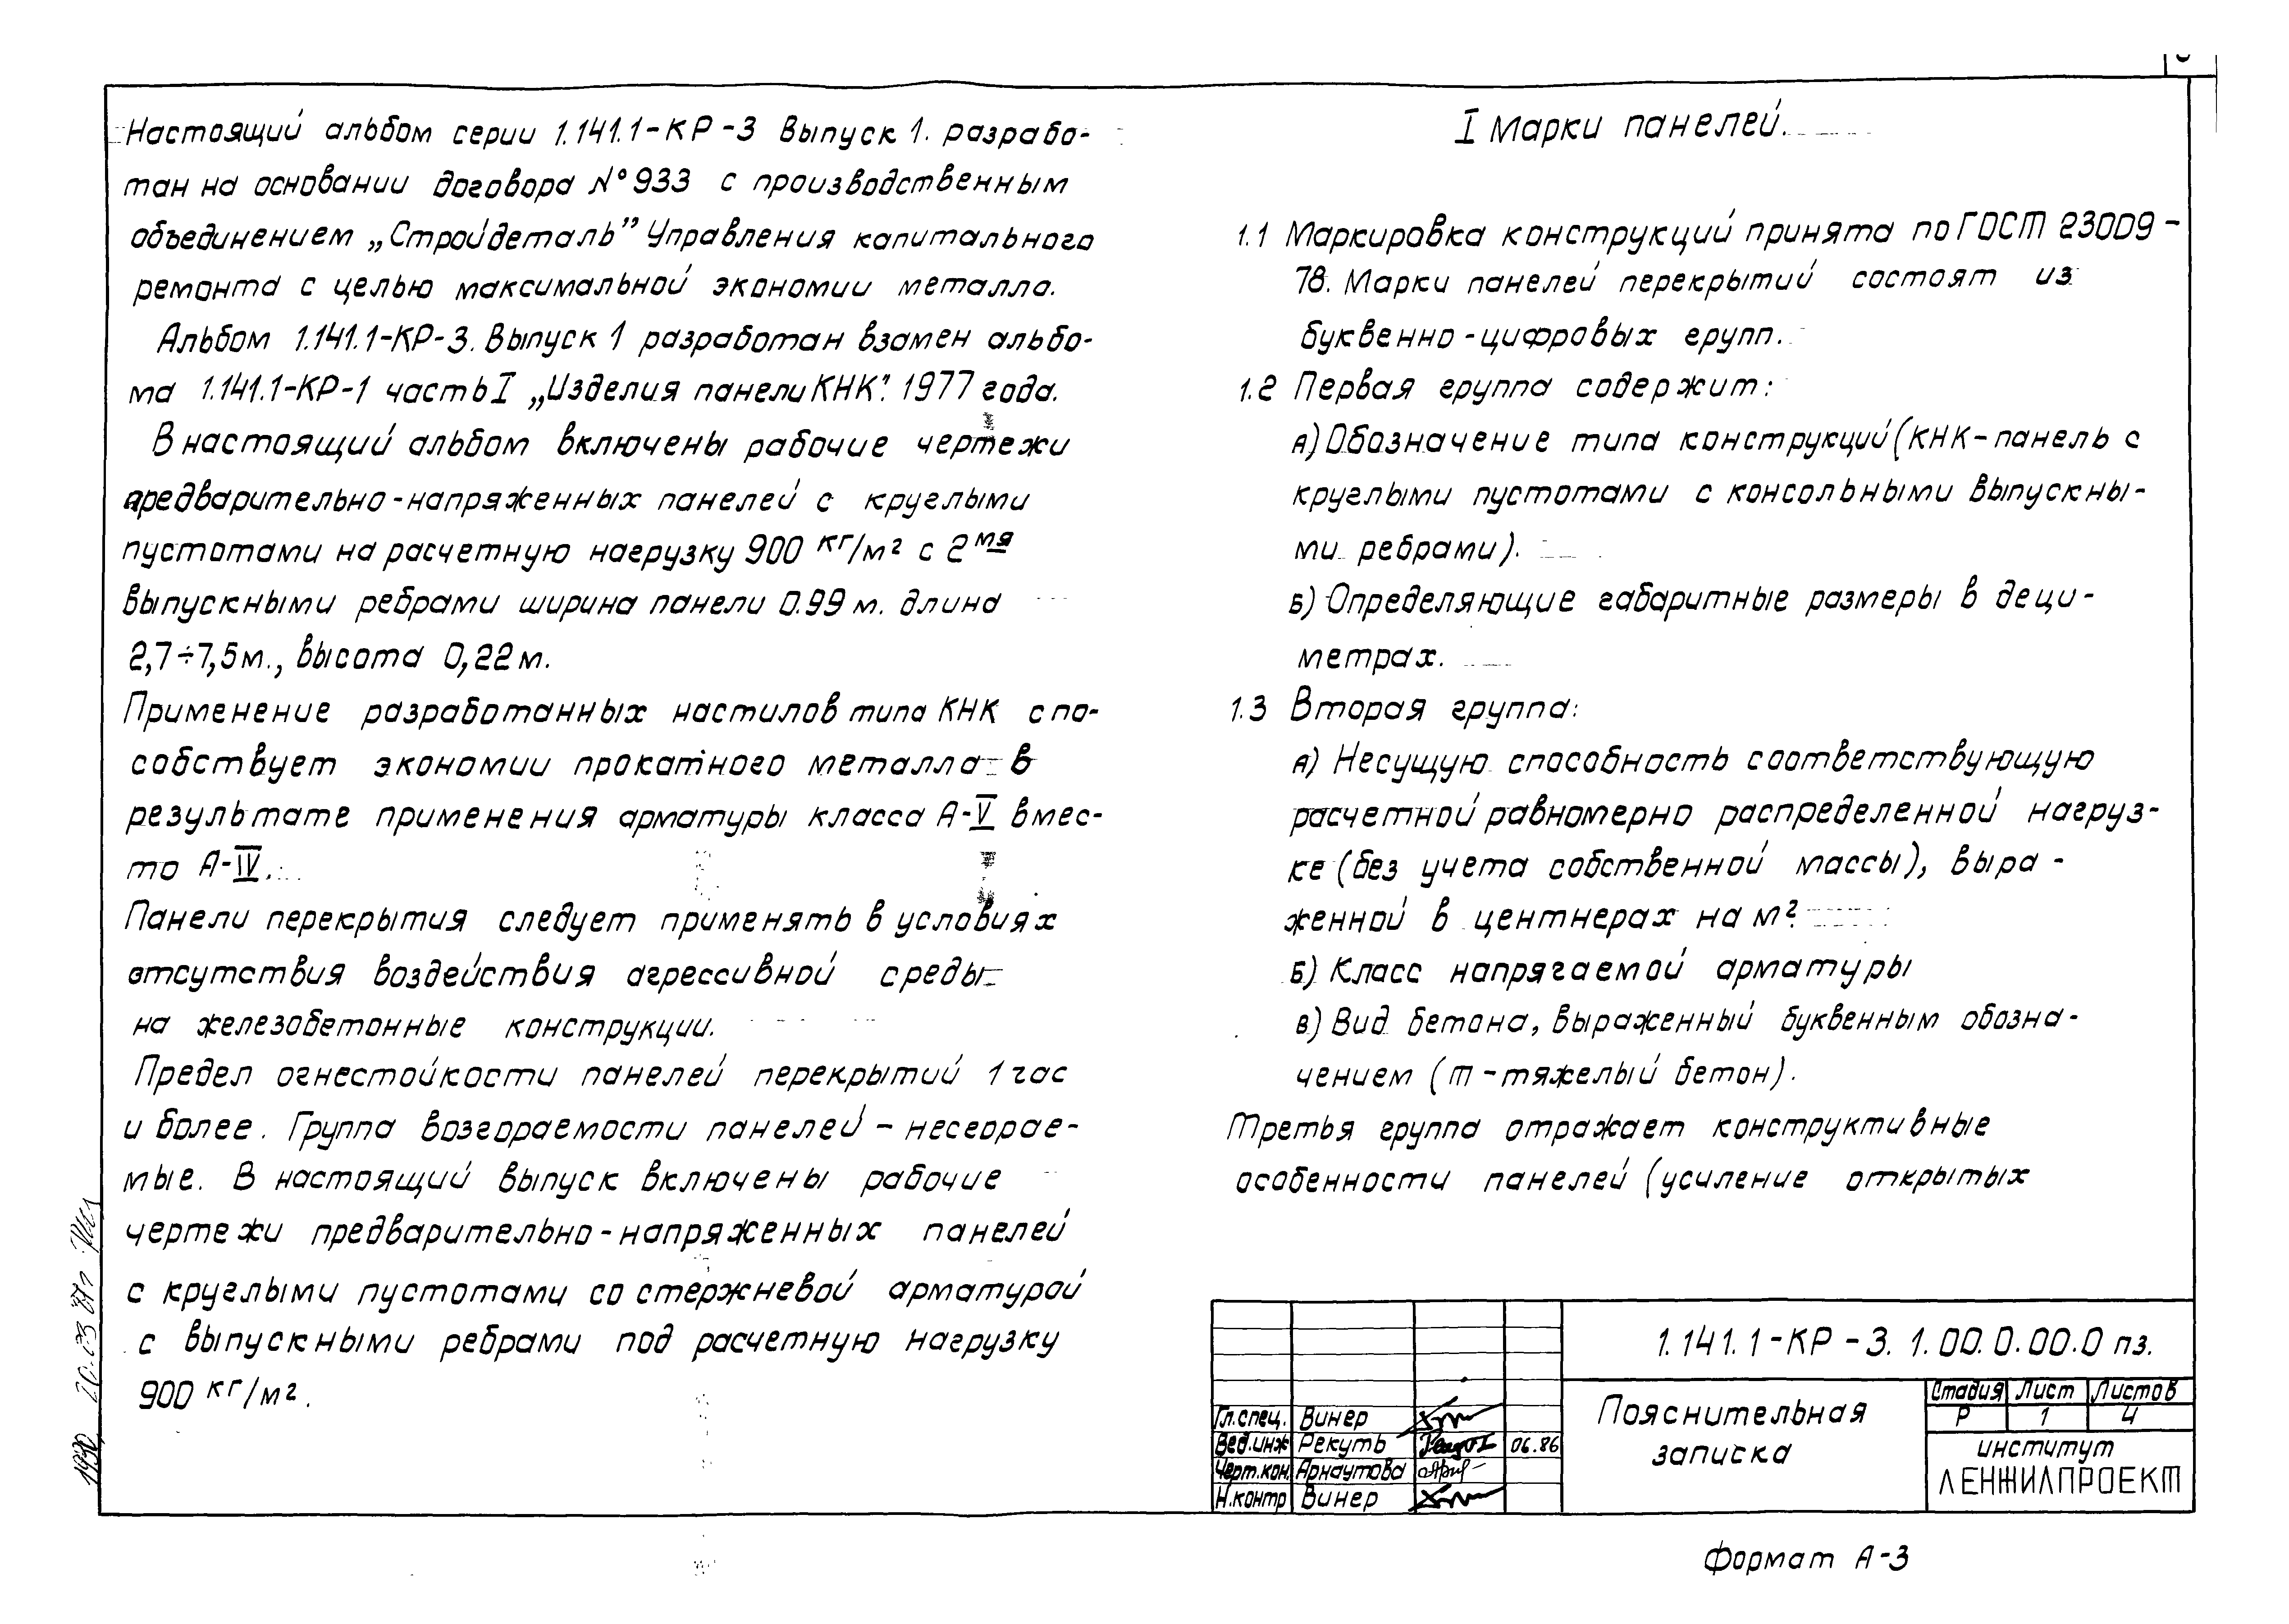 Настоящий альбом серии 1.141.1-КР-3 Выпуск 1. разрабо-
тан на основании договора №933 с производственным
объединением „Стройдеталь” Управления капитального
ремонта с целью максимальной экономии металла.
Альбом 1.141.1-КР-3. Выпуск 1 разработан взамен альбо-
ма 1.141.1-КР-1 часть I „Изделия панели КНК”. 1977 года.
В настоящий альбом включены рабочие чертежи
предварительно-напряженных панелей с круглыми
пустотами на расчетную нагрузку 900 кг/м² с 2мя
выпускными ребрами ширина панели 0.99 м. длина
2,7÷7,5м., высота 0,22 м.
Применение разработанных настилов типа КНК спо-
собствует экономии прокатного металла в
результате применения арматуры класса А-V вмес-
то А-IV.
Панели перекрытия следует применять в условиях
отсутствия воздействия агрессивной среды
на железобетонные конструкции.
Предел огнестойкости панелей перекрытий 1 час
и более. Группа возгораемости панелей - несгорае-
мые. В настоящий выпуск включены рабочие
чертежи предварительно-напряженных панелей
с круглыми пустотами со стержневой арматурой
с выпускными ребрами под расчетную нагрузку
900 кг/м².
I Марки панелей.
1.1 Маркировка конструкций принята по ГОСТ 23009-
78. Марки панелей перекрытий состоят из
буквенно-цифровых групп.
1.2 Первая группа содержит:
А) Обозначение типа конструкций (КНК-панель с
круглыми пустотами с консольными выпускны-
ми ребрами).
Б) Определяющие габаритные размеры в деци-
метрах.
1.3 Вторая группа:
А) Несущую способность соответствующую
расчетной равномерно распределенной нагруз-
ке (без учета собственной массы), выра-
женной в центнерах на м².
Б) Класс напрягаемой арматуры
В) Вид бетона, выраженный буквенным обозна-
чением (т-тяжелый бетон).
Третья группа отражает конструктивные
особенности панелей (усиление открытых
1.141.1-КР-3. 1.00.0.00.0 пз.
Пояснительная
записка
Стадия Лист Листов
Р 1 4
институт
ЛЕНЖИЛПРОЕКТ
Гл.спец. Винер
Вед.инж Рекуть 06.86
Черт.кон. Арнаутова
Н.контр Винер
Формат А-3
20.03.87г